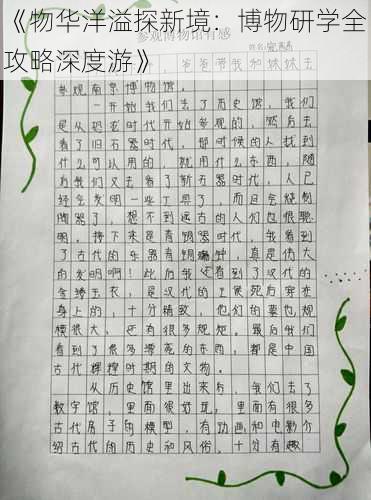 《物华洋溢探新境：博物研学全
攻略深度游》
参观博物馆有感
姓名:
，爸爸带我和妹妹去
参观南京博物馆。
一开始我们去了历史馆，我们
是从奶石时代开始参观的，然后去
看了旧石器时代，那时候的人找到
什么可以用的，就用什么东西，随
后我们又去看了新石器时代，人已
经会发明一些工具了，而且会烧制
陶器了，想不到远古的人们也很聪
明。接下来是青铜器时代，我看到
了古代的乐器青铜编钟，真是伟大
的发明啊！此后我还看到了汉代的
金缕玉衣，是汉代的王侯死后穿在
身上的，十分精致，他们的墓也规
模很大，还有很多规矩。最后我们
看到了很多漂亮的东西，都是中国
古代辉煌时期的文物。
从历史馆里出来后，我们去了
数字馆，里面很好玩；里面有很多
古代房子的模型，有动画和电影介
绍古代的历史和风俗，十分有趣